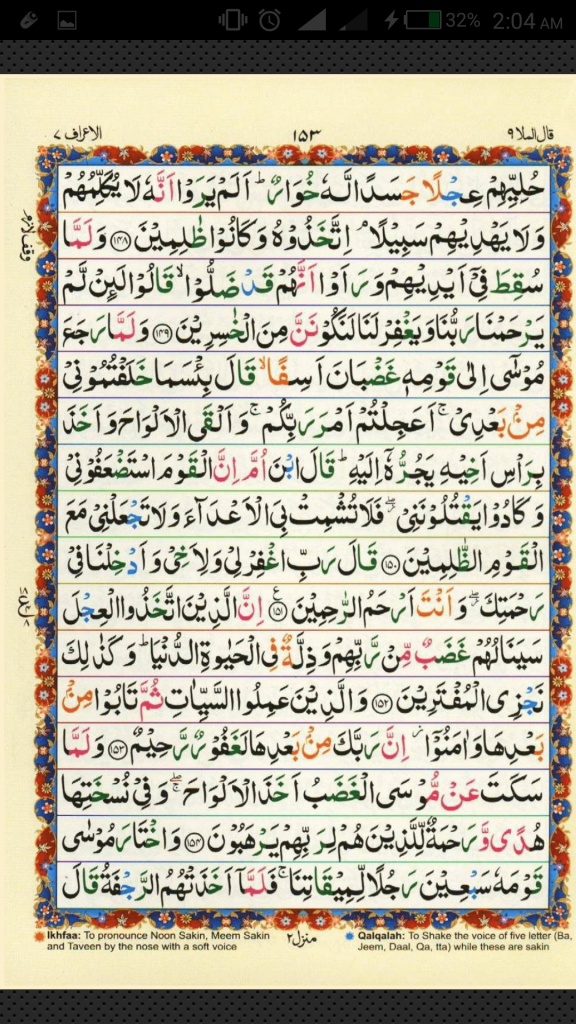 32% 2:04 AM
قال الملا ٩ ١٥٣ الاعراف ٧
حُلِيِّهِمْ عِجْلًا جَسَدًا لَّهٗ خُوَارٌ ؕ اَلَمْ يَرَوْا اَنَّهٗ لَا يُكَلِّمُهُمْ
وَلَا يَهْدِيْهِمْ سَبِيْلًا ۘ اِتَّخَذُوْهُ وَكَانُوْا ظٰلِمِيْنَ ﴿۱۴۸﴾ وَلَمَّا
وقف لازم
سُقِطَ فِيْۤ اَيْدِيْهِمْ وَرَاَوْا اَنَّهُمْ قَدْ ضَلُّوْا ۙ قَالُوْا لَئِنْ لَّمْ
يَرْحَمْنَا رَبُّنَا وَيَغْفِرْ لَنَا لَنَكُوْنَنَّ مِنَ الْخٰسِرِيْنَ ﴿۱۴۹﴾ وَلَمَّا رَجَعَ
مُوْسٰۤى اِلٰى قَوْمِهٖ غَضْبَانَ اَسِفًا ۙ قَالَ بِئْسَمَا خَلَفْتُمُوْنِيْ
مِنْۢ بَعْدِيْ ۚ اَعَجِلْتُمْ اَمْرَ رَبِّكُمْ ۚ وَاَلْقَى الْاَلْوَاحَ وَاَخَذَ
بِرَاْسِ اَخِيْهِ يَجُرُّهٗۤ اِلَيْهِ ؕ قَالَ ابْنَ اُمَّ اِنَّ الْقَوْمَ اسْتَضْعَفُوْنِيْ
وَكَادُوْا يَقْتُلُوْنَنِيْ ۖ فَلَا تُشْمِتْ بِيَ الْاَعْدَآءَ وَلَا تَجْعَلْنِيْ مَعَ
الْقَوْمِ الظّٰلِمِيْنَ ﴿۱۵۰﴾ قَالَ رَبِّ اغْفِرْ لِيْ وَلِاَخِيْ وَاَدْخِلْنَا فِيْ
رَحْمَتِكَ ۖ وَاَنْتَ اَرْحَمُ الرّٰحِمِيْنَ ﴿۱۵۱﴾ اِنَّ الَّذِيْنَ اتَّخَذُوا الْعِجْلَ
سَيَنَالُهُمْ غَضَبٌ مِّنْ رَّبِّهِمْ وَذِلَّةٌ فِي الْحَيٰوةِ الدُّنْيَا ؕ وَكَذٰلِكَ
نَجْزِي الْمُفْتَرِيْنَ ﴿۱۵۲﴾ وَالَّذِيْنَ عَمِلُوا السَّيِّاٰتِ ثُمَّ تَابُوْا مِنْۢ
بَعْدِهَا وَاٰمَنُوْۤا ۫ اِنَّ رَبَّكَ مِنْۢ بَعْدِهَا لَغَفُوْرٌ رَّحِيْمٌ ﴿۱۵۳﴾ وَلَمَّا
سَكَتَ عَنْ مُّوْسَى الْغَضَبُ اَخَذَ الْاَلْوَاحَ ۖ وَفِيْ نُسْخَتِهَا
هُدًى وَّرَحْمَةٌ لِّلَّذِيْنَ هُمْ لِرَبِّهِمْ يَرْهَبُوْنَ ﴿۱۵۴﴾ وَاخْتَارَ مُوْسٰى
قَوْمَهٗ سَبْعِيْنَ رَجُلًا لِّمِيْقَاتِنَا ۚ فَلَمَّاۤ اَخَذَتْهُمُ الرَّجْفَةُ قَالَ
منزل ٢
Ikhfaa: To pronounce Noon Sakin, Meem Sakin
and Taveen by the nose with a soft voice
Qalqalah: To Shake the voice of five letter (Ba,
Jeem, Daal, Qa, tta) while these are sakin